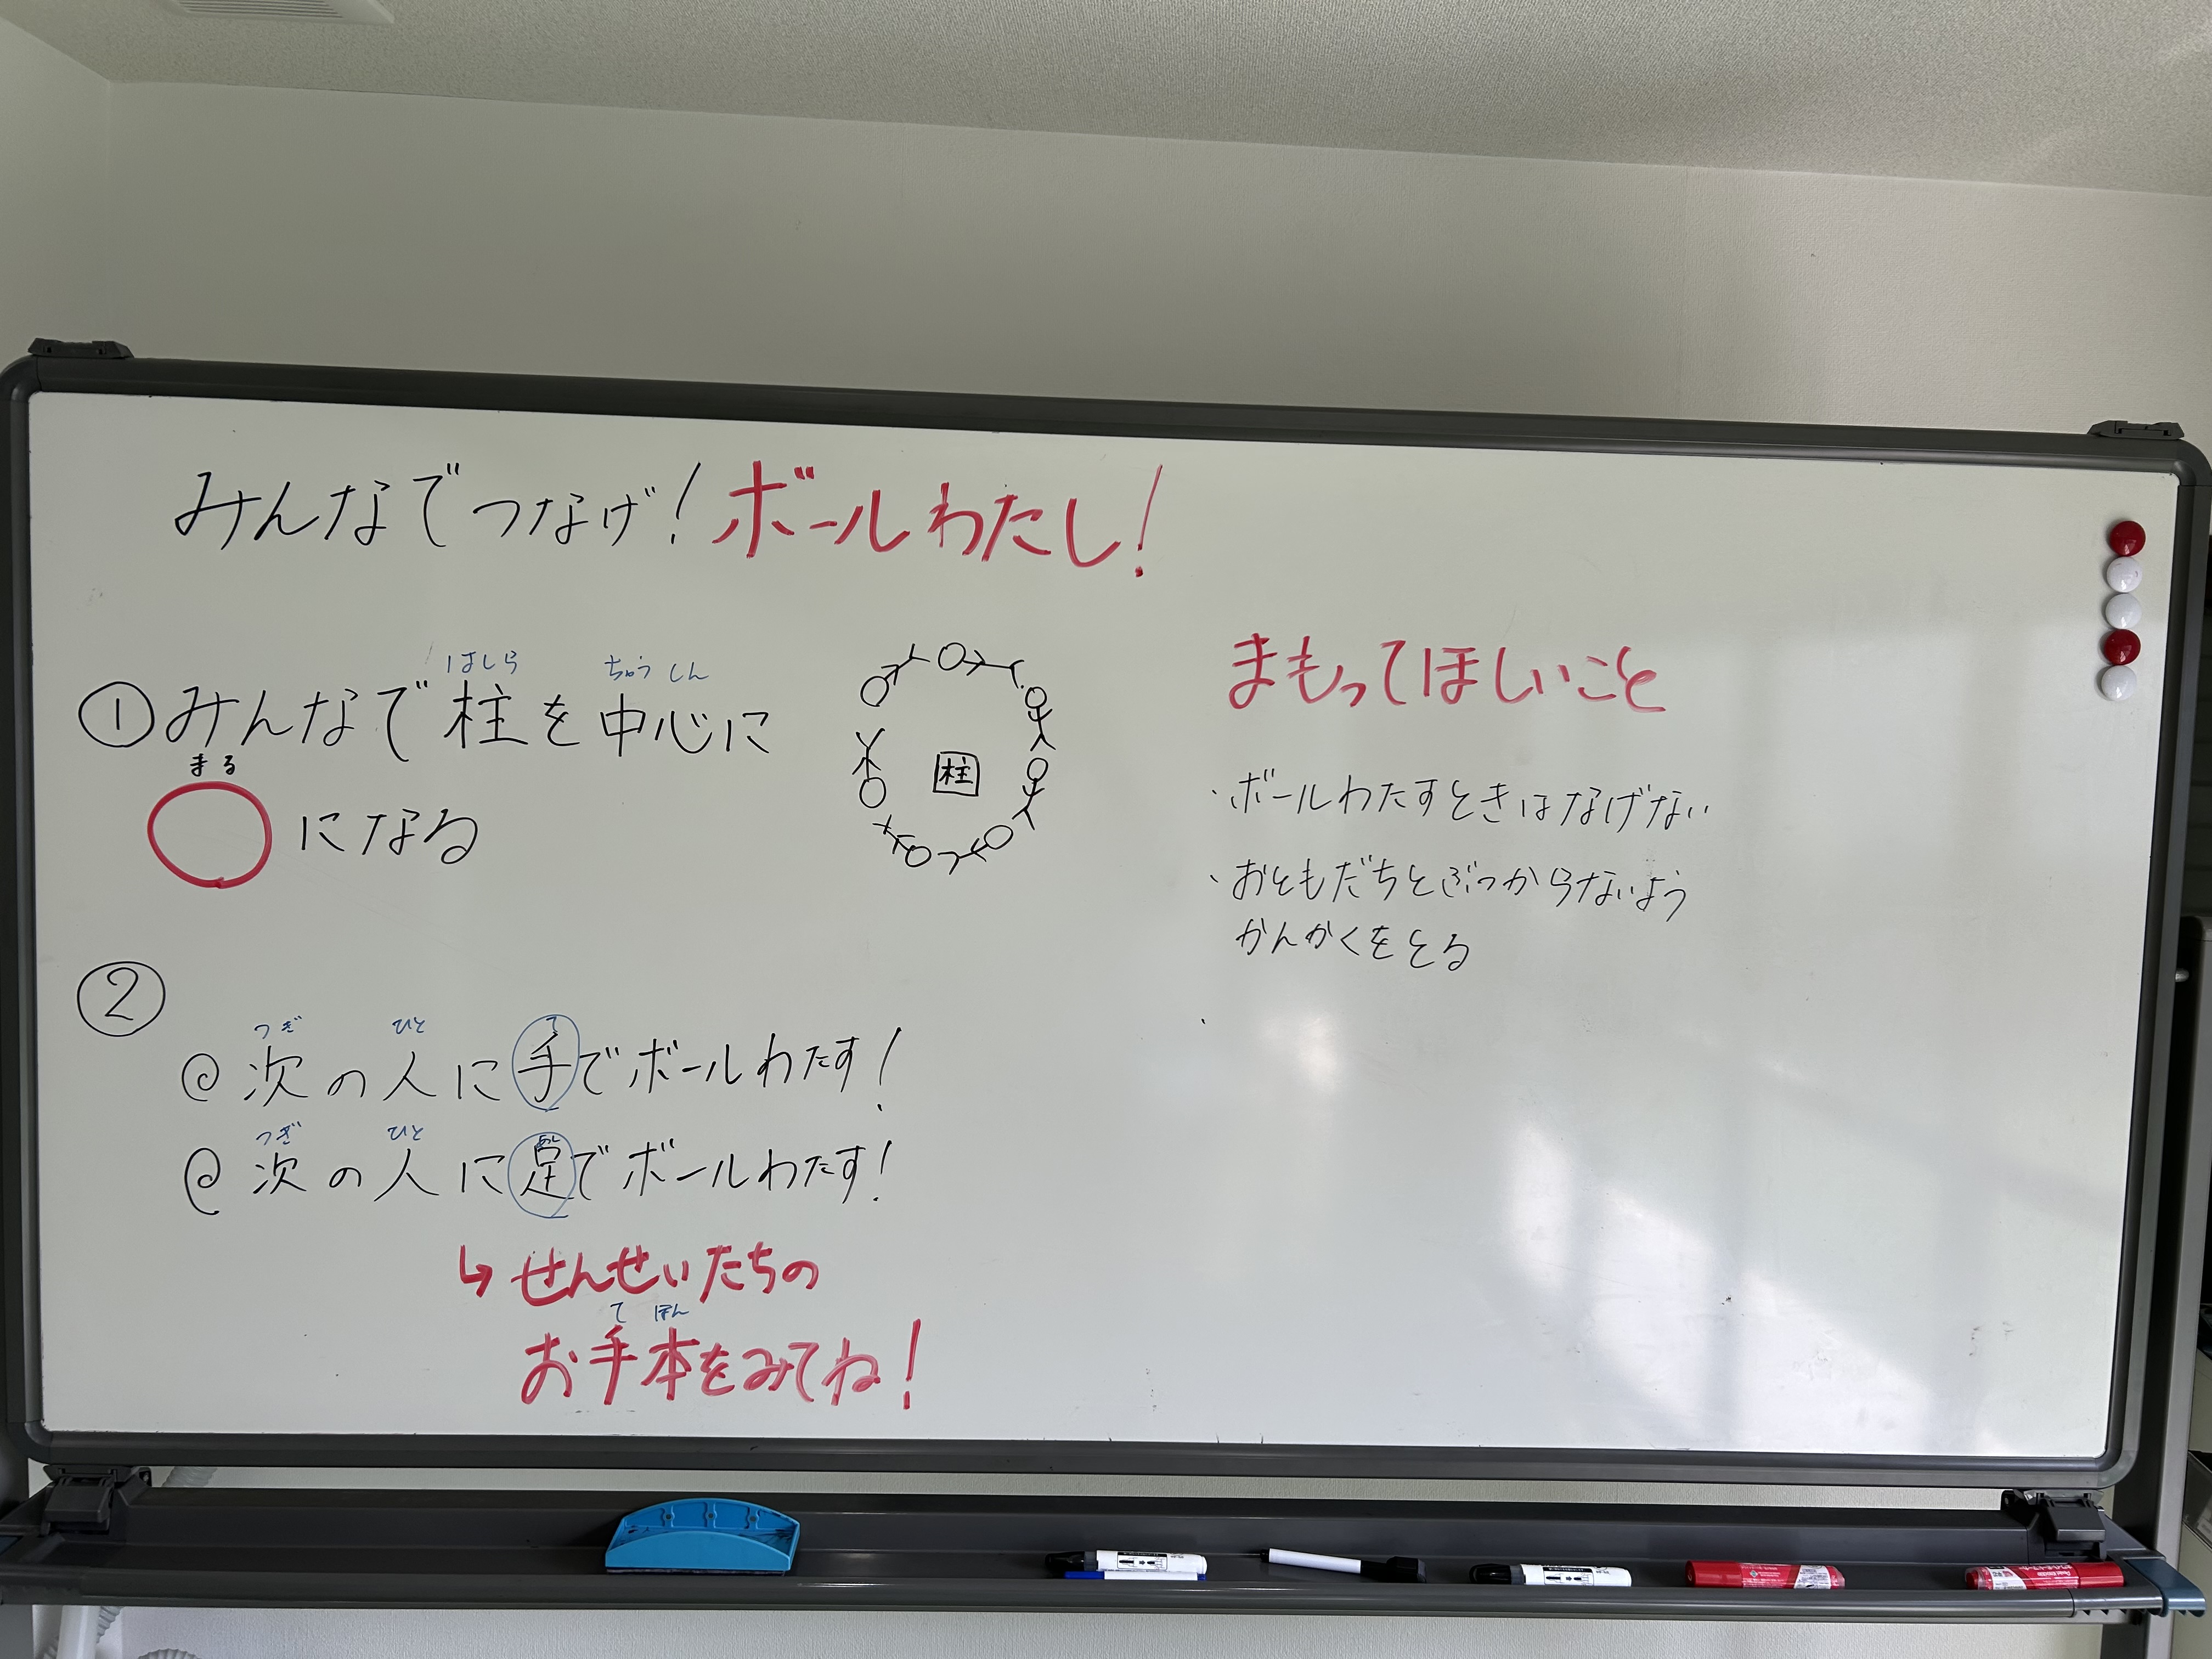 みんなでつなげ!ボールわたし!
はしら ちゅうしん
①みんなで柱を中心に
まる
○になる
柱
②
つぎ ひと て
@次の人に手でボールわたす!
つぎ ひと あし
@次の人に足でボールわたす!
↳せんせいたちの
て ほん
お手本をみてね!
まもってほしいこと
・ボールわたすときはなげない
・おともだちとぶつからないよう
かんかくをとる
・